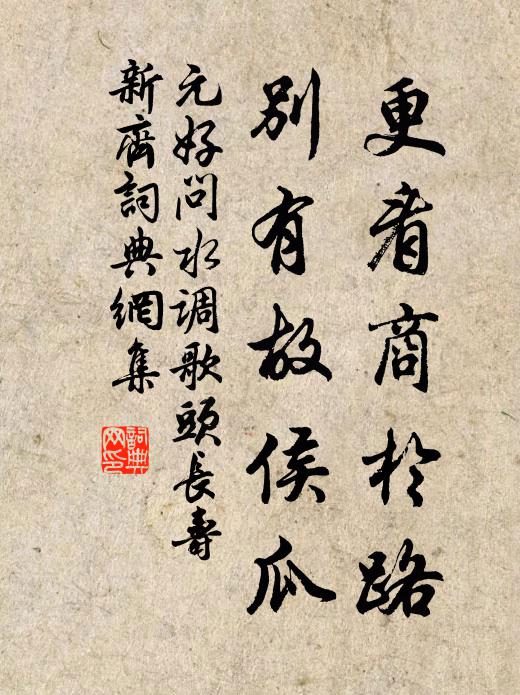 更看商於路
別有故侯瓜
元好問水調歌頭長壽
新齋詞典網集
詞典
网印